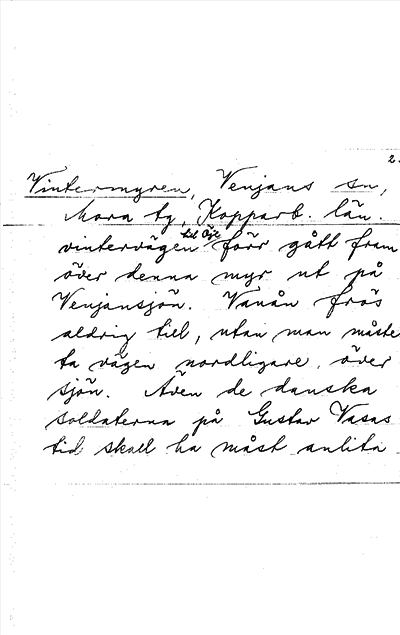 2.
Vintermyren, Venjans sn,
Mora tg, Kopparb. län.
vintervägen till Öje förr gått fram
över denna myr ut på
Venjansjön. Vanån frös
aldrig till, utan man måste
ta vägen nordligare, över
sjön. Även de danska
soldaterna på Gustav Vasas
tid skall ha måst anlita